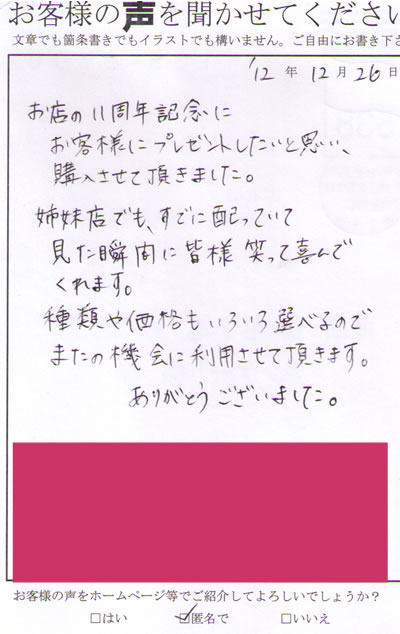 お客様の声を聞かせてください
文章でも箇条書きでもイラストでも構いません。ご自由にお書き下さ
'12年12月26日
お店の11周年記念に
お客様にプレゼントしたいと思い、
購入させて頂きました。
姉妹店でも、すでに配っていて
見た瞬間に皆様笑って喜んで
くれます。
種類や価格もいろいろ選べるので
またの機会に利用させて頂きます。
ありがとうございました。
お客様の声をホームページ等でご紹介してよろしいでしょうか？
□はい ☑匿名で □いいえ